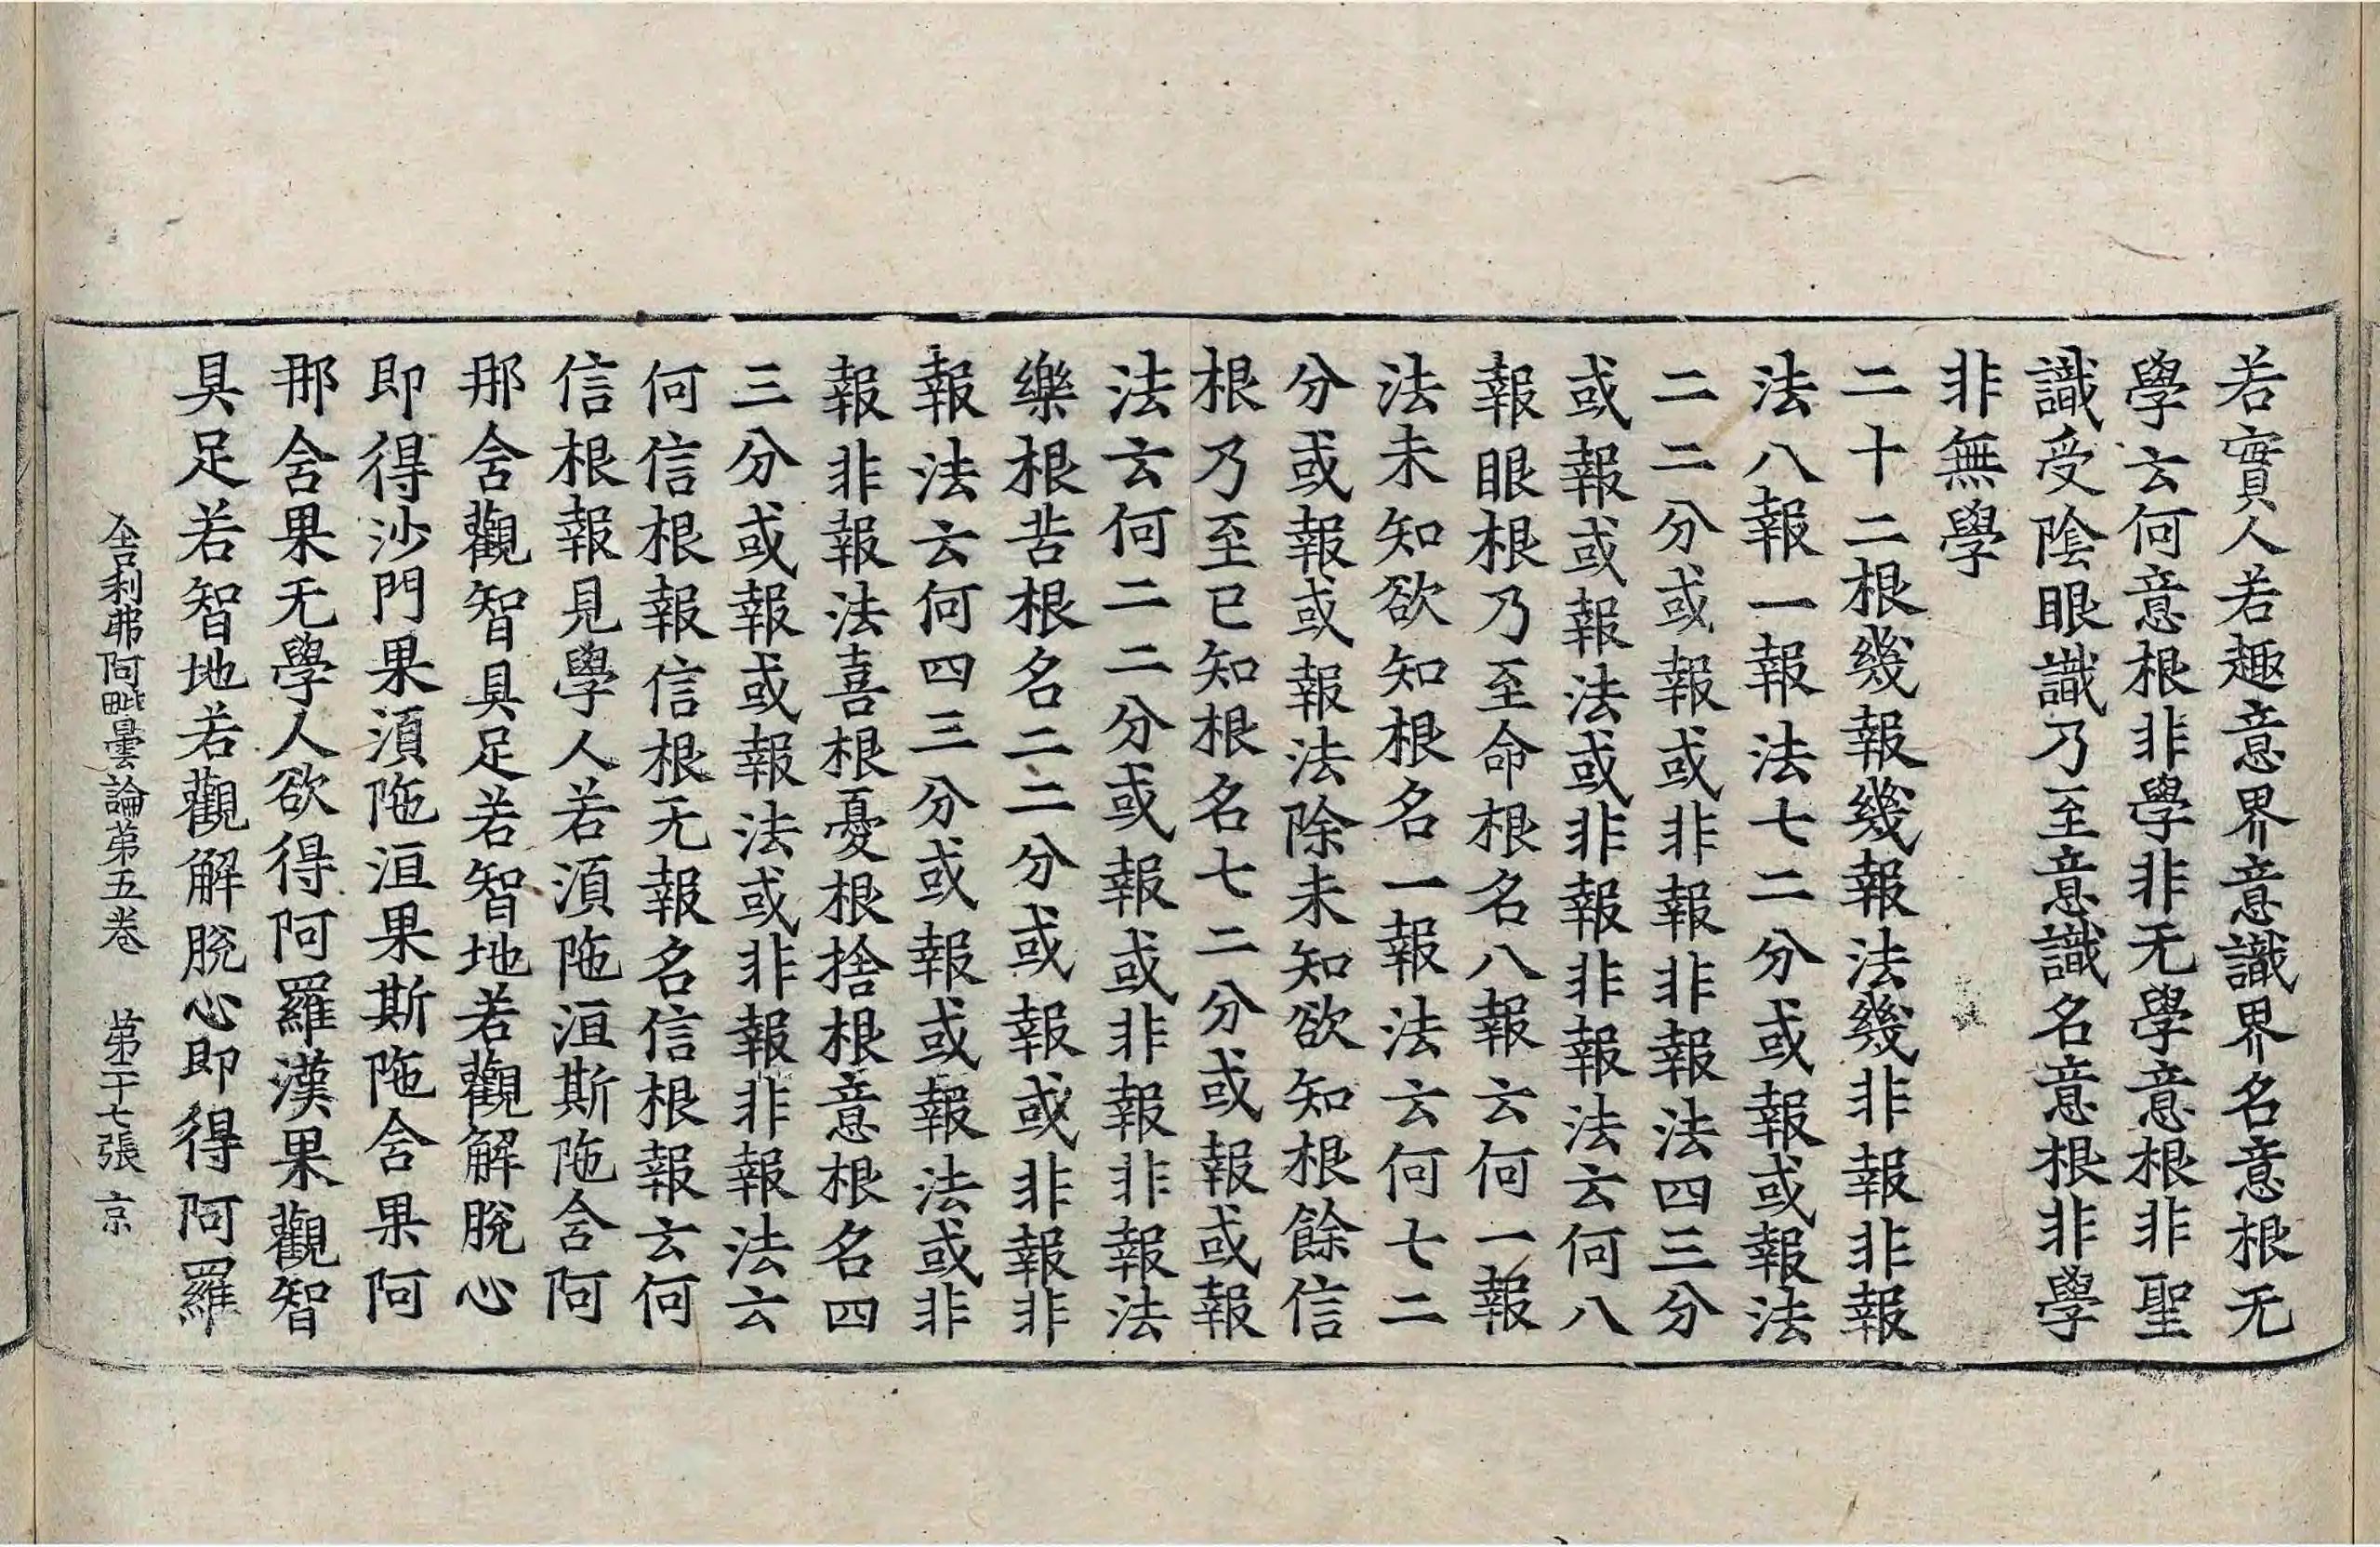 若實人若趣意界意識界名意根无
學云何意根非學非无學意根非聖
識受陰眼識乃至意識名意根非學
非無學
二十二根幾報幾報法幾非報非報
法八報一報法七二分或報或報法
二二分或報或非報非報法四三分
或報或報法或非報非報法云何八
報眼根乃至命根名八報云何一報
法未知欲知根名一報法云何七二
分或報或報法除未知欲知根餘信
根乃至已知根名七二分或報或報
法云何二二分或報或非報非報法
樂根苦根名二二分或報或非報非
報法云何四三分或報或報法或非
報非報法喜根憂根捨根意根名四
三分或報或報法或非報非報法云
何信根報信根无報名信根報云何
信根報見學人若湏陁洹斯陁舍阿
那舍觀智具足若智地若觀解脫心
即得沙門果湏陁洹果斯陁舍果阿
那舍果无學人欲得阿羅漢果觀智
具足若智地若觀解脫心即得阿羅
舍利弗阿毗曇論第五卷 第二十七張 京